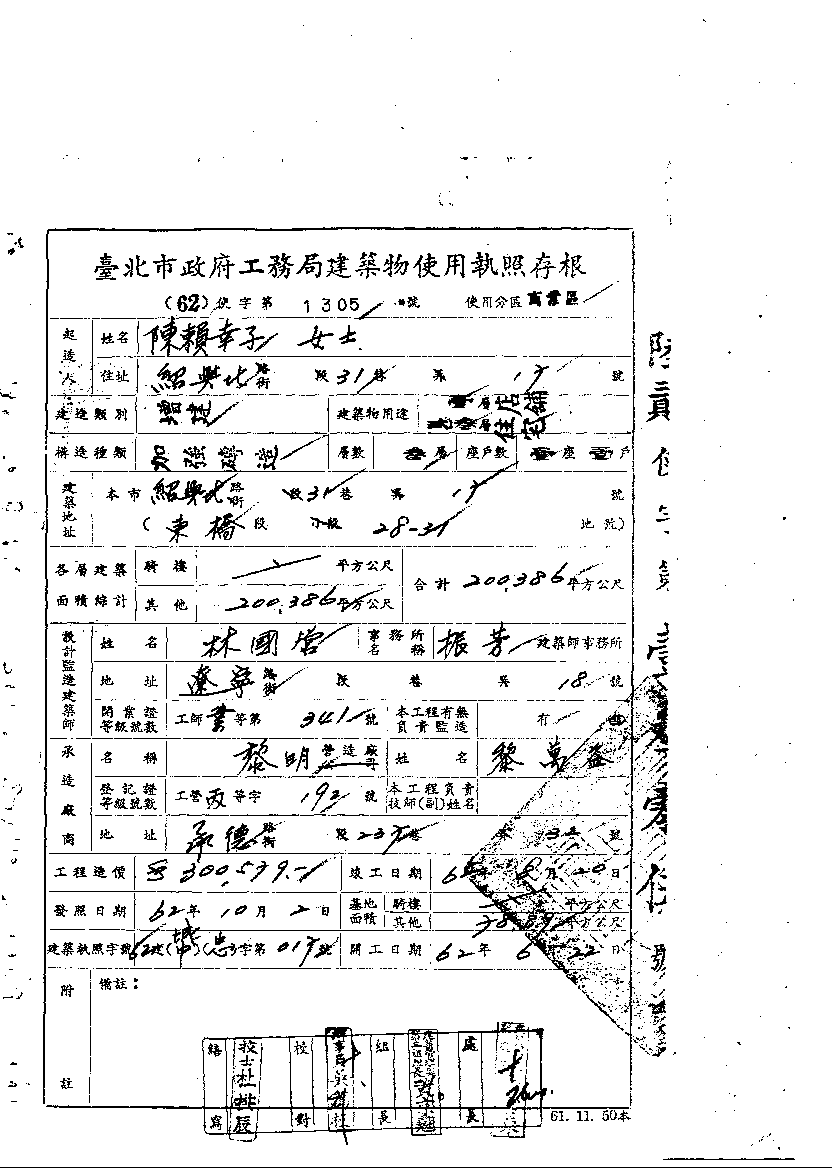 臺北市政府工務局建築物使用執照存根
(62)使字第 1305 號 使用分區 商業區
起造人 姓名 陳賴幸子 女士
住址 紹興北 路街 段 31 巷 弄 17 號
建造類別 增建 建築物用途 層店舖 層住宅
構造種類 加強磚造 層數 層 座戶數 座 戶
建築地址 本市 紹興北 路街 段 31 巷 弄 17 號
(東橋 段 小段 28-31 地號)
各層建築面積綜計 騎樓 平方公尺 合計 200.386 平方公尺
其他 200.386 平方公尺
設計監造建築師 姓名 林國 事務所名稱 振芳 建築師事務所
地址 遼寧 路街 段 巷 弄 18 號
開業證等級號數 工師 等第 341 號 本工程有無負責監造 有
承造廠商 名稱 黎明 營造廠 姓名 黎萬益
登記證等級號數 工營 丙 等字 192 號 本工程負責技師(副)姓名
地址 承德 路街 段 237 巷 弄 32 號
工程造價 300,579.- 竣工日期 62 年 8 月 20 日
發照日期 62 年 10 月 2 日 基地面積 騎樓 平方公尺
其他 平方公尺
建築執照字號 62 建( )(忠)字第 017 號 開工日期 62 年 6 月 22 日
附註 備註:
繕寫 技士杜 校對 組長 處長
61. 11. 50本